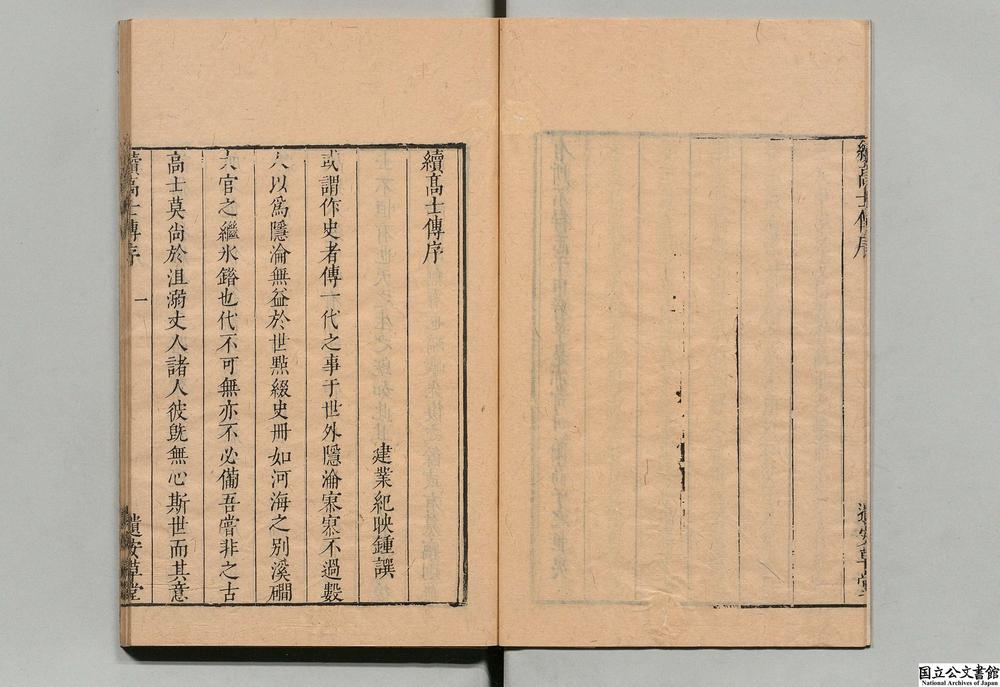 續高士傳序
遺安草堂
續高士傳序
建業紀映鍾譔
或謂作史者傳一代之事于世外隱淪寥寥不過數
人以爲隱淪無益於世點綴史冊如河海之別溪磵
大官之繼氷鎗也代不可無亦不必備吾嘗非之古
高士莫尙於沮溺丈人諸人彼旣無心斯世而其意
續高士傳序
一
遺安草堂
国立公文書館
National Archives of Japan